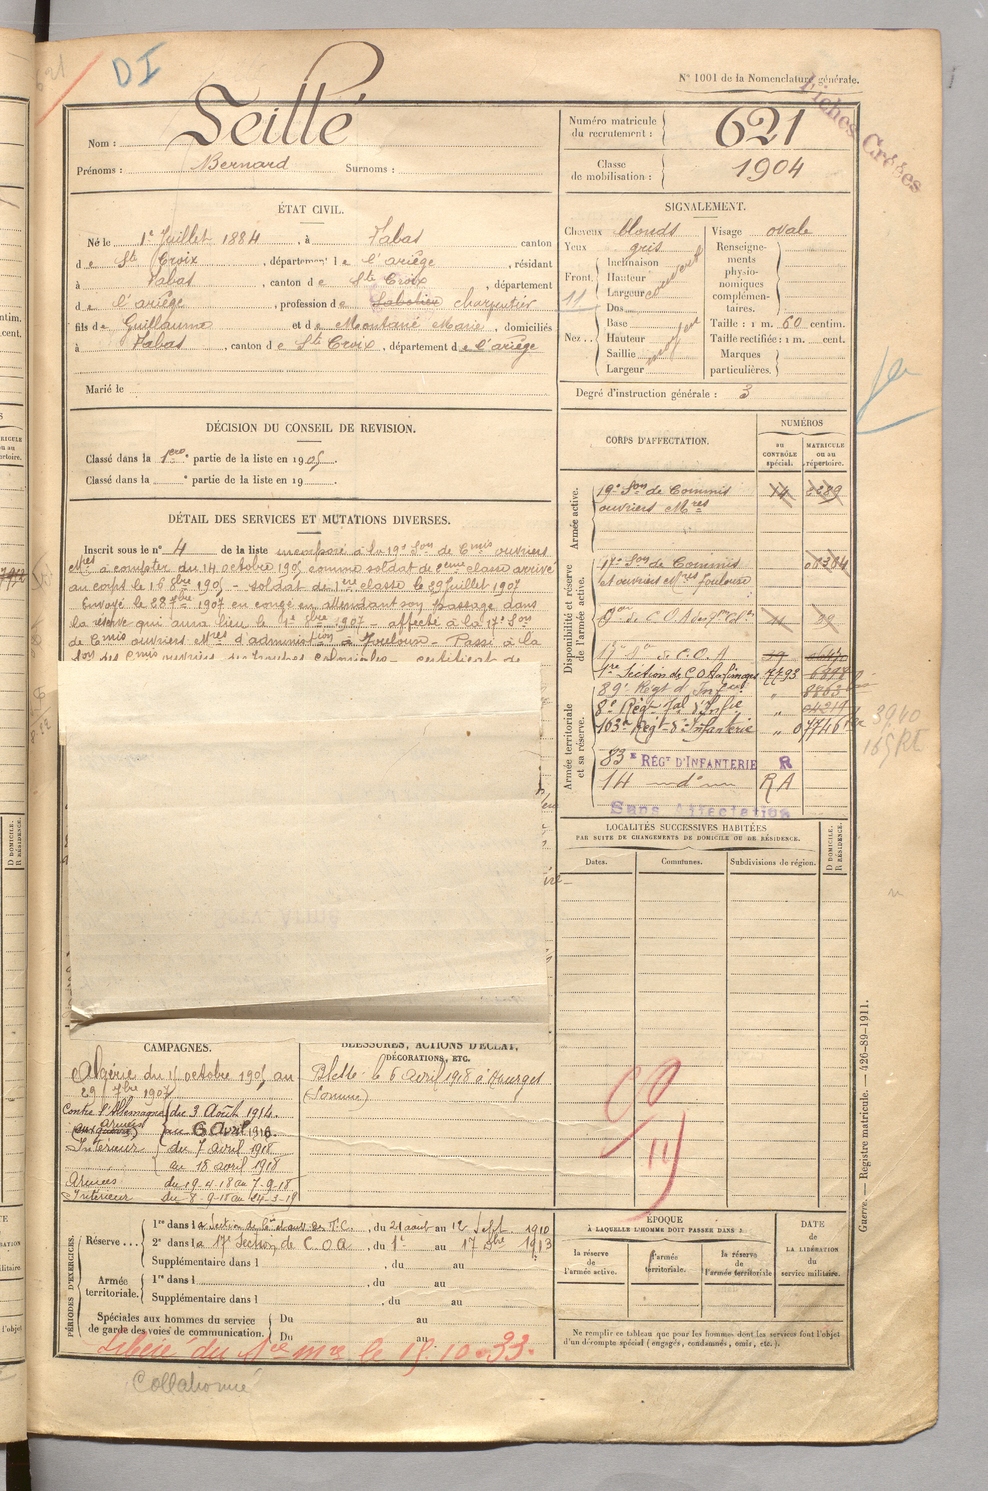 621
DI
N° 1001 de la Nomenclature générale.
Fiches Créées
Nom : Seillé
Prénoms : Bernard Surnoms :
Numéro matricule du recrutement : 621
Classe de mobilisation : 1904
ÉTAT CIVIL.
Né le 1er Juillet 1884, à Fabas canton
de Ste Croix, département de l'ariège, résidant
à Fabas, canton de Ste Croix, département
de l'ariège, profession de charpentier
fils de Guillaume et de Montané Marie, domiciliés
à Fabas, canton de Ste Croix, département de l'ariège
Marié le
SIGNALEMENT.
Cheveux blonds Visage ovale
Yeux gris
Renseignements physionomiques complémentaires.
Front. Inclinaison
Hauteur
Largeur couvert
11
Nez .. Dos
Base
Hauteur
Saillie moyen
Largeur
Taille : 1 m. 60 centim.
Taille rectifiée : 1 m. cent.
Marques particulières.
Degré d'instruction générale : 3
DÉCISION DU CONSEIL DE REVISION.
Classé dans la 1ère partie de la liste en 1905.
Classé dans la e partie de la liste en 19
DÉTAIL DES SERVICES ET MUTATIONS DIVERSES.
Inscrit sous le n° 4 de la liste incorporé à la 19e Son de Cmis ouvriers
Mres à compter du 14 octobre 1905 comme soldat de 2ème classe arrivé
au corps le 16 8bre 1905 - soldat de 1ère classe le 29 Juillet 1907
Envoyé le 28 7bre 1907 en congé en attendant son passage dans
la réserve qui aura lieu le 1er 8bre 1907 - affecté à la 17e Son
de Cmis ouvriers Mres d'administration à Toulouse - Passé à la
Son des Cmis ouvriers des troupes coloniales - certificat de
CORPS D'AFFECTATION.
NUMÉROS
au CONTRÔLE spécial.
MATRICULE ou au répertoire.
Armée active.
19e Son de Commis 14 2289
ouvriers Mres
Disponibilité et réserve de l'armée active.
17e Son de Commis
et ouvriers Mres Toulouse
17e Son de C.O.A
1re Section de C O A Limoges 7793
89e Régt d'Infrie
Armée territoriale et sa réserve.
8e Régt Tal d'Infie
163e Régt d'Infanterie " 07746
83e RÉGT D'INFANTERIE R
14 do RA
Sans Affectation
3940
163 RI
LOCALITÉS SUCCESSIVES HABITÉES
PAR SUITE DE CHANGEMENTS DE DOMICILE OU DE RÉSIDENCE.
Dates. Communes. Subdivisions de région.
D DOMICILE. R RÉSIDENCE.
CAMPAGNES.
Algérie du 14 octobre 1905 au
29 7bre 1907
Contre l'Allemagne du 3 Août 1914.
Armées au 6 Avril 1918.
Intérieur du 7 avril 1918
au 18 avril 1918
Armées du 19-4-18 au 7-9-18
Intérieur du 8-9-18 au 24-3-19
BLESSURES, ACTIONS D'ÉCLAT, DÉCORATIONS, ETC.
Blessé le 6 Avril 1918 à Hourges
(Somme)
PÉRIODES D'EXERCICES.
Réserve... 1re dans la Section de Cis et ouv. des T.C., du 21 août au 12 Sept 1910
2e dans la 17e Section de C.O.A, du 1er au 17 Xbre 1913
Supplémentaire dans l , du au
Armée territoriale. 1re dans l , du au
Supplémentaire dans l , du au
Spéciales aux hommes du service de garde des voies de communication. Du au
Du au
Libéré du Sce Mre le 15.10.33.
Collationné
ÉPOQUE
À LAQUELLE L'HOMME DOIT PASSER DANS :
la réserve de l'armée active.
l'armée territoriale.
la réserve de l'armée territoriale
DATE DE LA LIBÉRATION du service militaire.
Ne remplir ce tableau que pour les hommes dont les services font l'objet
d'un décompte spécial (engagés, condamnés, omis, etc.).
Guerre. — Registre matricule. — 426-89-1911.